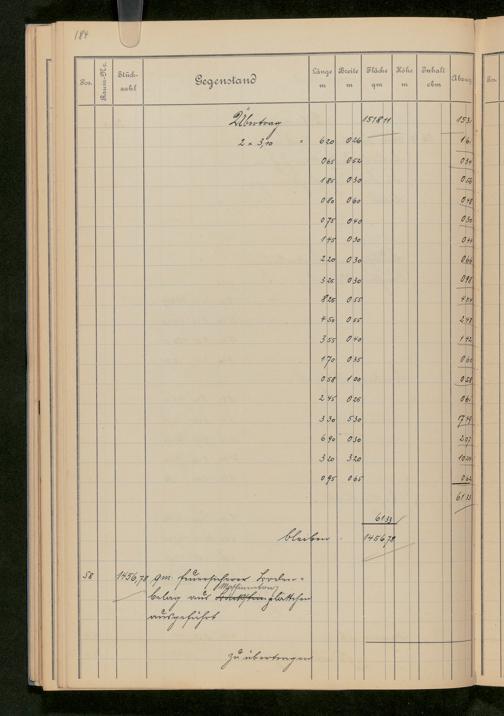 184
Pos. Raum-No. Stückzahl Gegenstand Länge m Breite m Fläche qm Höhe m Inhalt cbm Abzug
Übertrag 1518 11 15 31
2 × 3,10 " 6 20 0 26 1 61
0 65 0 52 0 34
1 85 0 30 0 56
0 80 0 60 0 48
0 75 0 40 0 30
1 45 0 30 0 44
2 20 0 30 0 66
3 25 0 30 0 98
8 25 0 55 4 54
4 50 0 55 2 48
3 55 0 40 1 42
1 70 0 35 0 60
0 58 1 00 0 58
2 45 0 25 0 61
3 30 5 30 17 49
6 90 0 30 2 07
3 20 3 20 10 24
0 95 0 65 0 62
61 33
61 33
bleiben 1456,78
58 1456,78 qm feuersicherer Boden-
belag aus plättchen
ausgeführt
zu übertragen